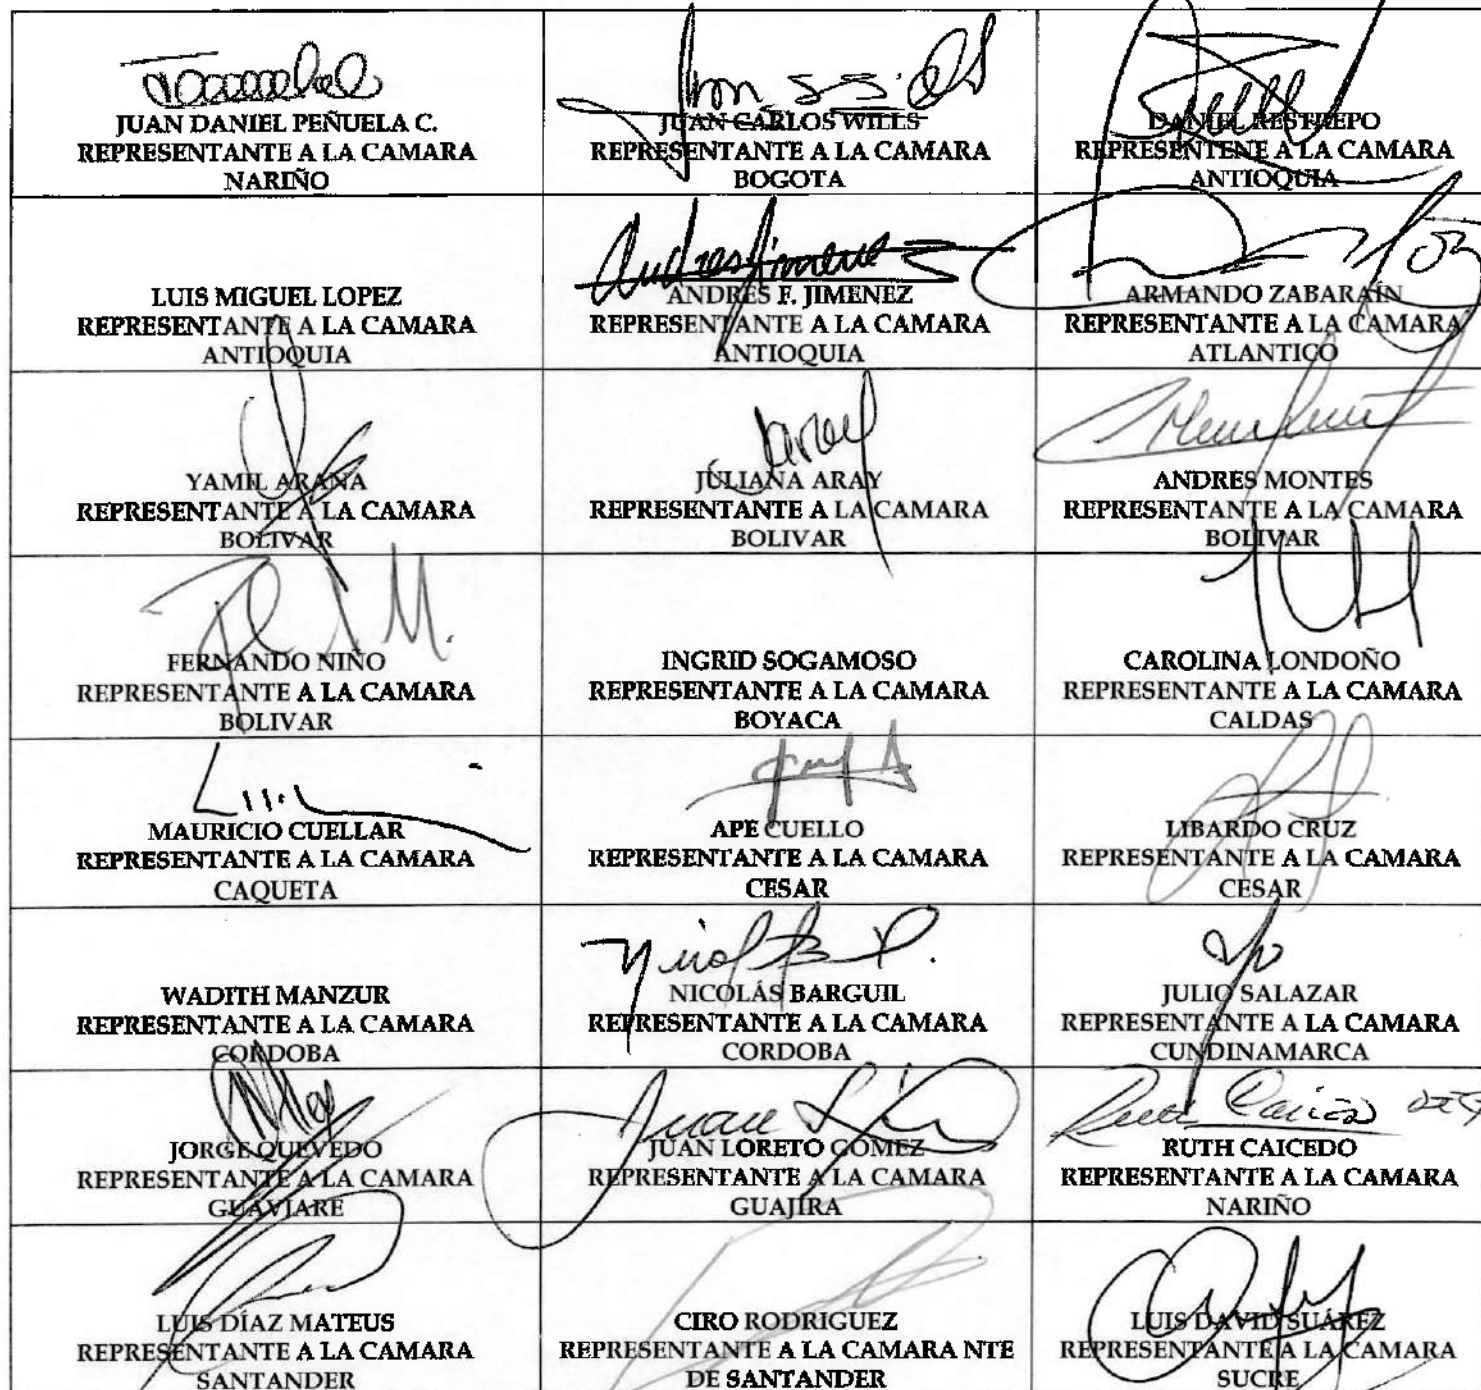 JUAN DANIEL PEÑUELA C.
REPRESENTANTE A LA CAMARA
NARIÑO
JUAN CARLOS WILLS
REPRESENTANTE A LA CAMARA
BOGOTA
DANIEL RESTREPO
REPRESENTENE A LA CAMARA
ANTIOQUIA
LUIS MIGUEL LOPEZ
REPRESENTANTE A LA CAMARA
ANTIOQUIA
Andres Jimenez
ANDRES F. JIMENEZ
REPRESENTANTE A LA CAMARA
ANTIOQUIA
ARMANDO ZABARAÍN
REPRESENTANTE A LA CAMARA
ATLANTICO
YAMIL ARANA
REPRESENTANTE A LA CAMARA
BOLIVAR
JULIANA ARAY
REPRESENTANTE A LA CAMARA
BOLIVAR
ANDRES MONTES
REPRESENTANTE A LA CAMARA
BOLIVAR
FERNANDO NIÑO
REPRESENTANTE A LA CAMARA
BOLIVAR
INGRID SOGAMOSO
REPRESENTANTE A LA CAMARA
BOYACA
CAROLINA LONDOÑO
REPRESENTANTE A LA CAMARA
CALDAS
MAURICIO CUELLAR
REPRESENTANTE A LA CAMARA
CAQUETA
APE CUELLO
REPRESENTANTE A LA CAMARA
CESAR
LIBARDO CRUZ
REPRESENTANTE A LA CAMARA
CESAR
WADITH MANZUR
REPRESENTANTE A LA CAMARA
CORDOBA
NICOLÁS BARGUIL
REPRESENTANTE A LA CAMARA
CORDOBA
JULIO SALAZAR
REPRESENTANTE A LA CAMARA
CUNDINAMARCA
JORGE QUEVEDO
REPRESENTANTE A LA CAMARA
GUAVIARE
Juan
JUAN LORETO GÓMEZ
REPRESENTANTE A LA CAMARA
GUAJIRA
Ruth Caicedo
RUTH CAICEDO
REPRESENTANTE A LA CAMARA
NARIÑO
LUIS DÍAZ MATEUS
REPRESENTANTE A LA CAMARA
SANTANDER
CIRO RODRIGUEZ
REPRESENTANTE A LA CAMARA NTE
DE SANTANDER
LUIS DAVID SUÁREZ
REPRESENTANTE A LA CAMARA
SUCRE